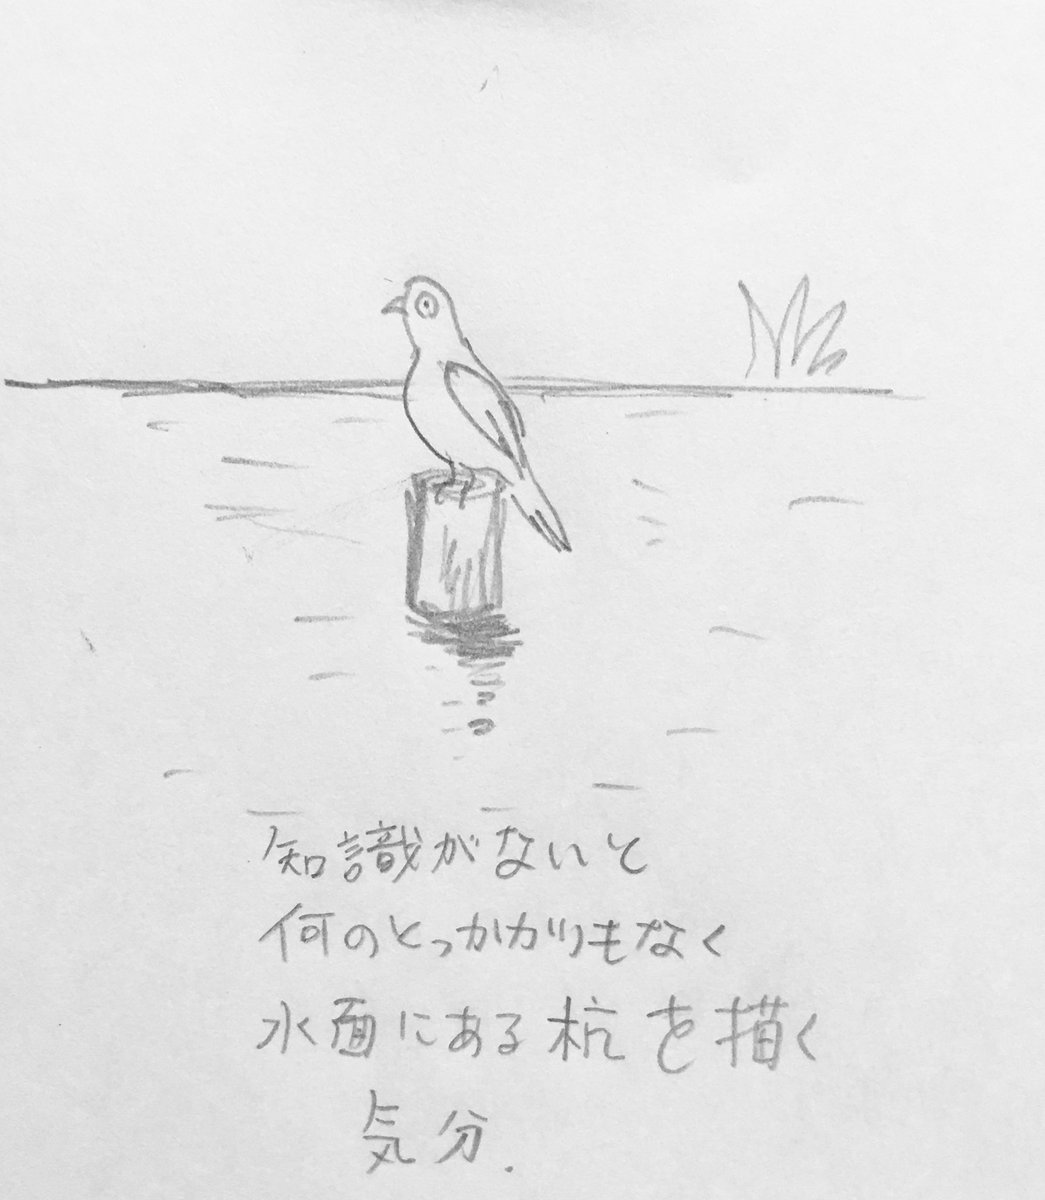 知識がないと
何のとっかかりもなく
水面にある杭を描く
気分.